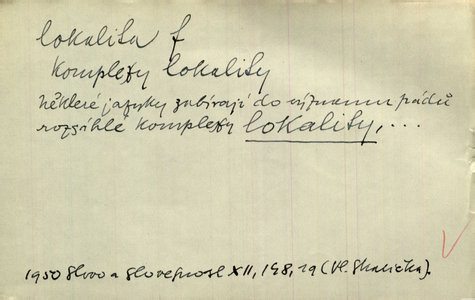 lokalita f
komplexy lokality
některé jazyky zabírají do významu pádů
rozsáhlé komplexy lokality, ...
1950 Slovo a Slovesnost XII, 148, 19 (Vl. Skalička).